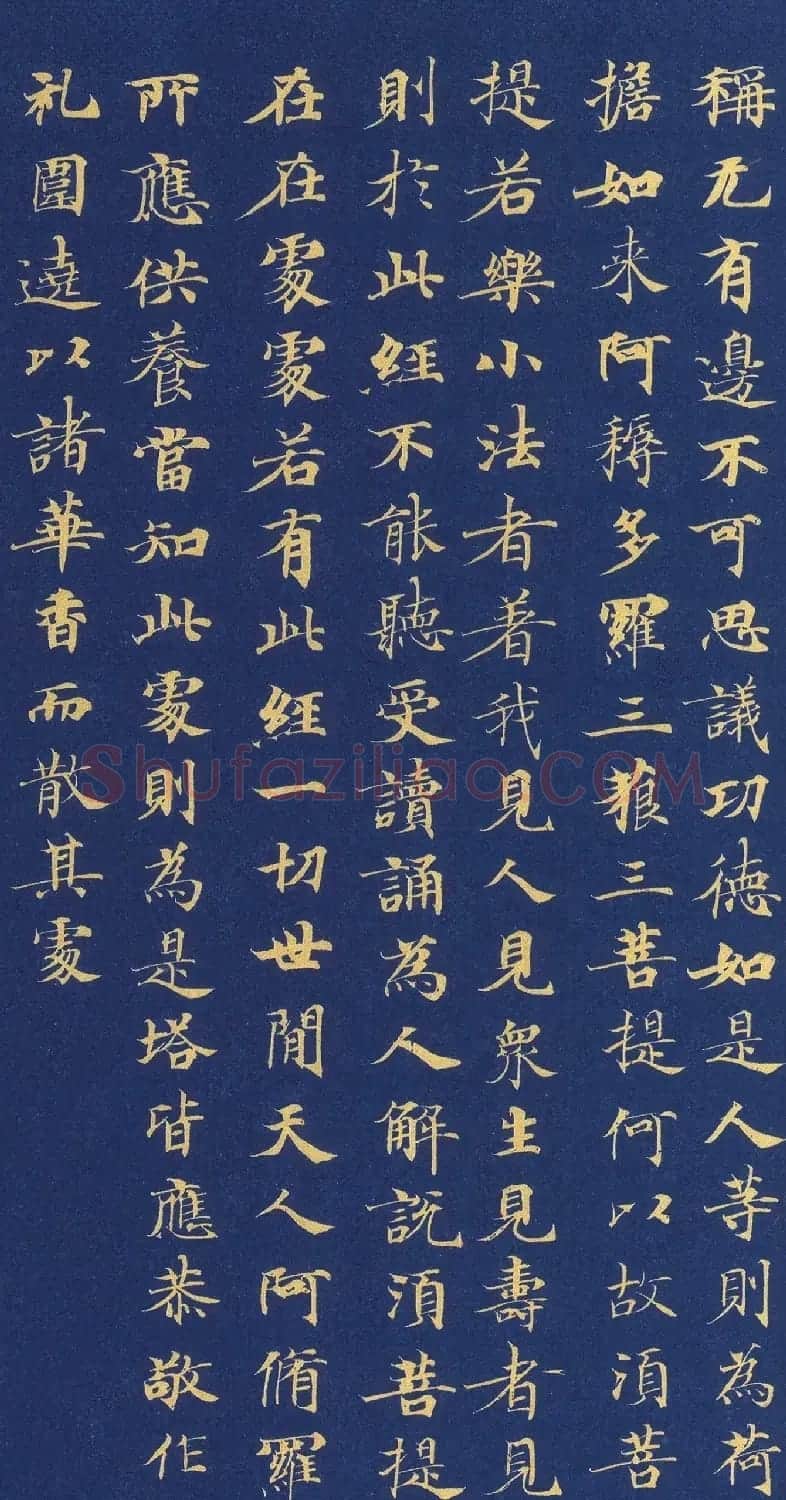 稱无有邊不可思議功德如是人等則為荷
擔如来阿耨多羅三藐三菩提何以故湏菩
提若樂小法者著我見人見衆生見壽者見
則於此經不能聽受讀誦為人解説湏菩提
在在處處若有此經一切世閒天人阿脩羅
所應供養當知此處則為是塔皆應恭敬作
礼圍遶以諸華香而散其處
Shufaziliao.COM